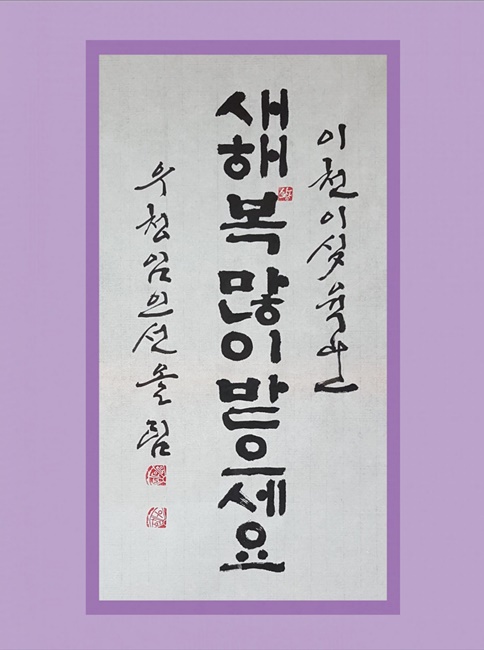 이천이십육년
새해 복 많이 받으세요
우천 임인선 올림